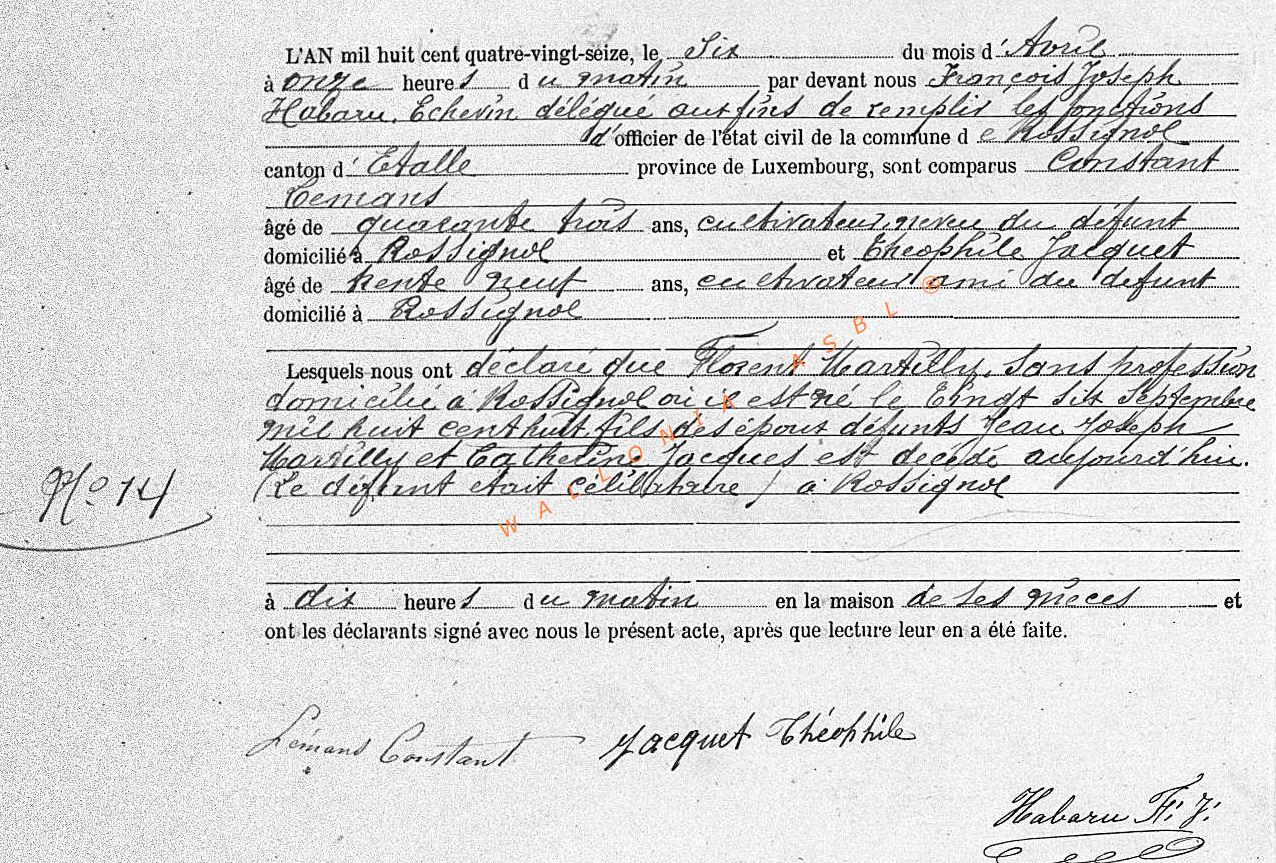 L'AN mil huit cent quatre-vingt-seize, le Six du mois d'Avril
à onze heures du matin par devant nous François Joseph
Habaru, Echevin délégué aux fins de remplir les fonctions
d'officier de l'état civil de la commune de Rossignol
canton d'Etalle province de Luxembourg, sont comparus Constant
Lemans
âgé de quarante trois ans, cultivateur, neveu du défunt
domicilié à Rossignol et Théophile Jacquet
âgé de trente neuf ans, cultivateur ami du defunt
domicilié à Rossignol
Lesquels nous ont déclaré que Florent Martilly, sans profession
domicilié à Rossignol où il est né le Vingt six Septembre
mil huit cent huit, fils des époux défunts Jean Joseph
Martilly et Catherine Jacques est decédé aujourd'hui.
(Le défunt etait célibataire) à Rossignol
No 14
à dix heures du matin en la maison de ses nièces et
ont les déclarants signé avec nous le présent acte, après que lecture leur en a été faite.
Lémans Constant Jacquet Théophile
Habaru F. J.
WALLONIA ASBL ©